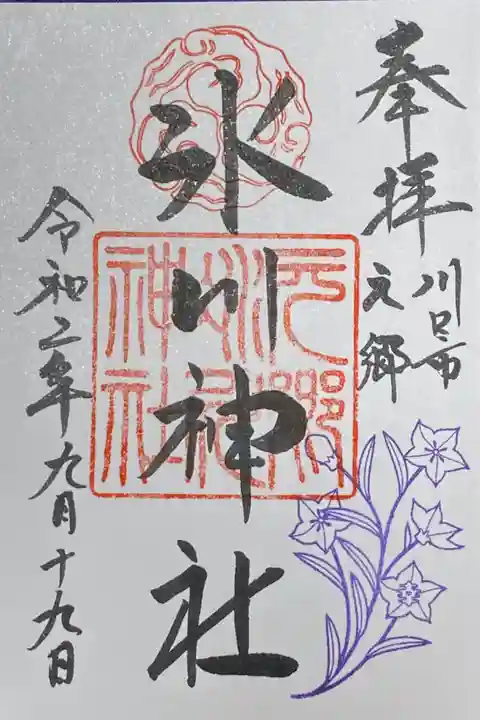 奉拝
川口市
元郷
氷川神社
元郷
氷川
神社
令和二年九月十九日